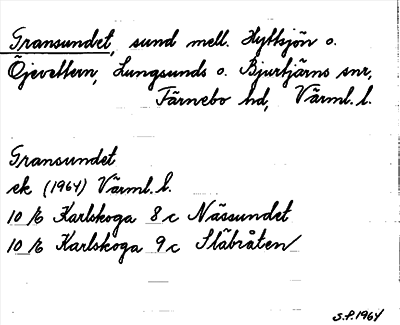 Gransundet, sund mell. Hyttsjön o.
Öjevettern, Lungsunds o. Bjurtjärns snr,
Färnebo hd, Värml. l.
Gransundet
ek (1964) Värml. l.
10 /6 Karlskoga 8 c Nässundet
10 /6 Karlskoga 9 c Släbråten
S.P. 1964